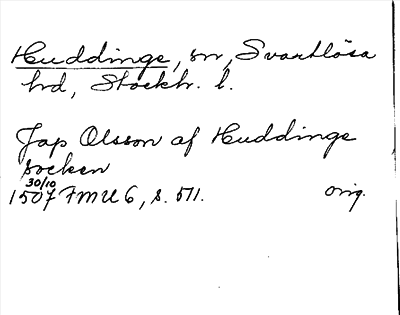 Huddinge, sn, Svartlösa
hd, Stockh. l.
Jap Olsson af Huddinge
socken
30/10
1507 FMU 6, s. 511.
orig.